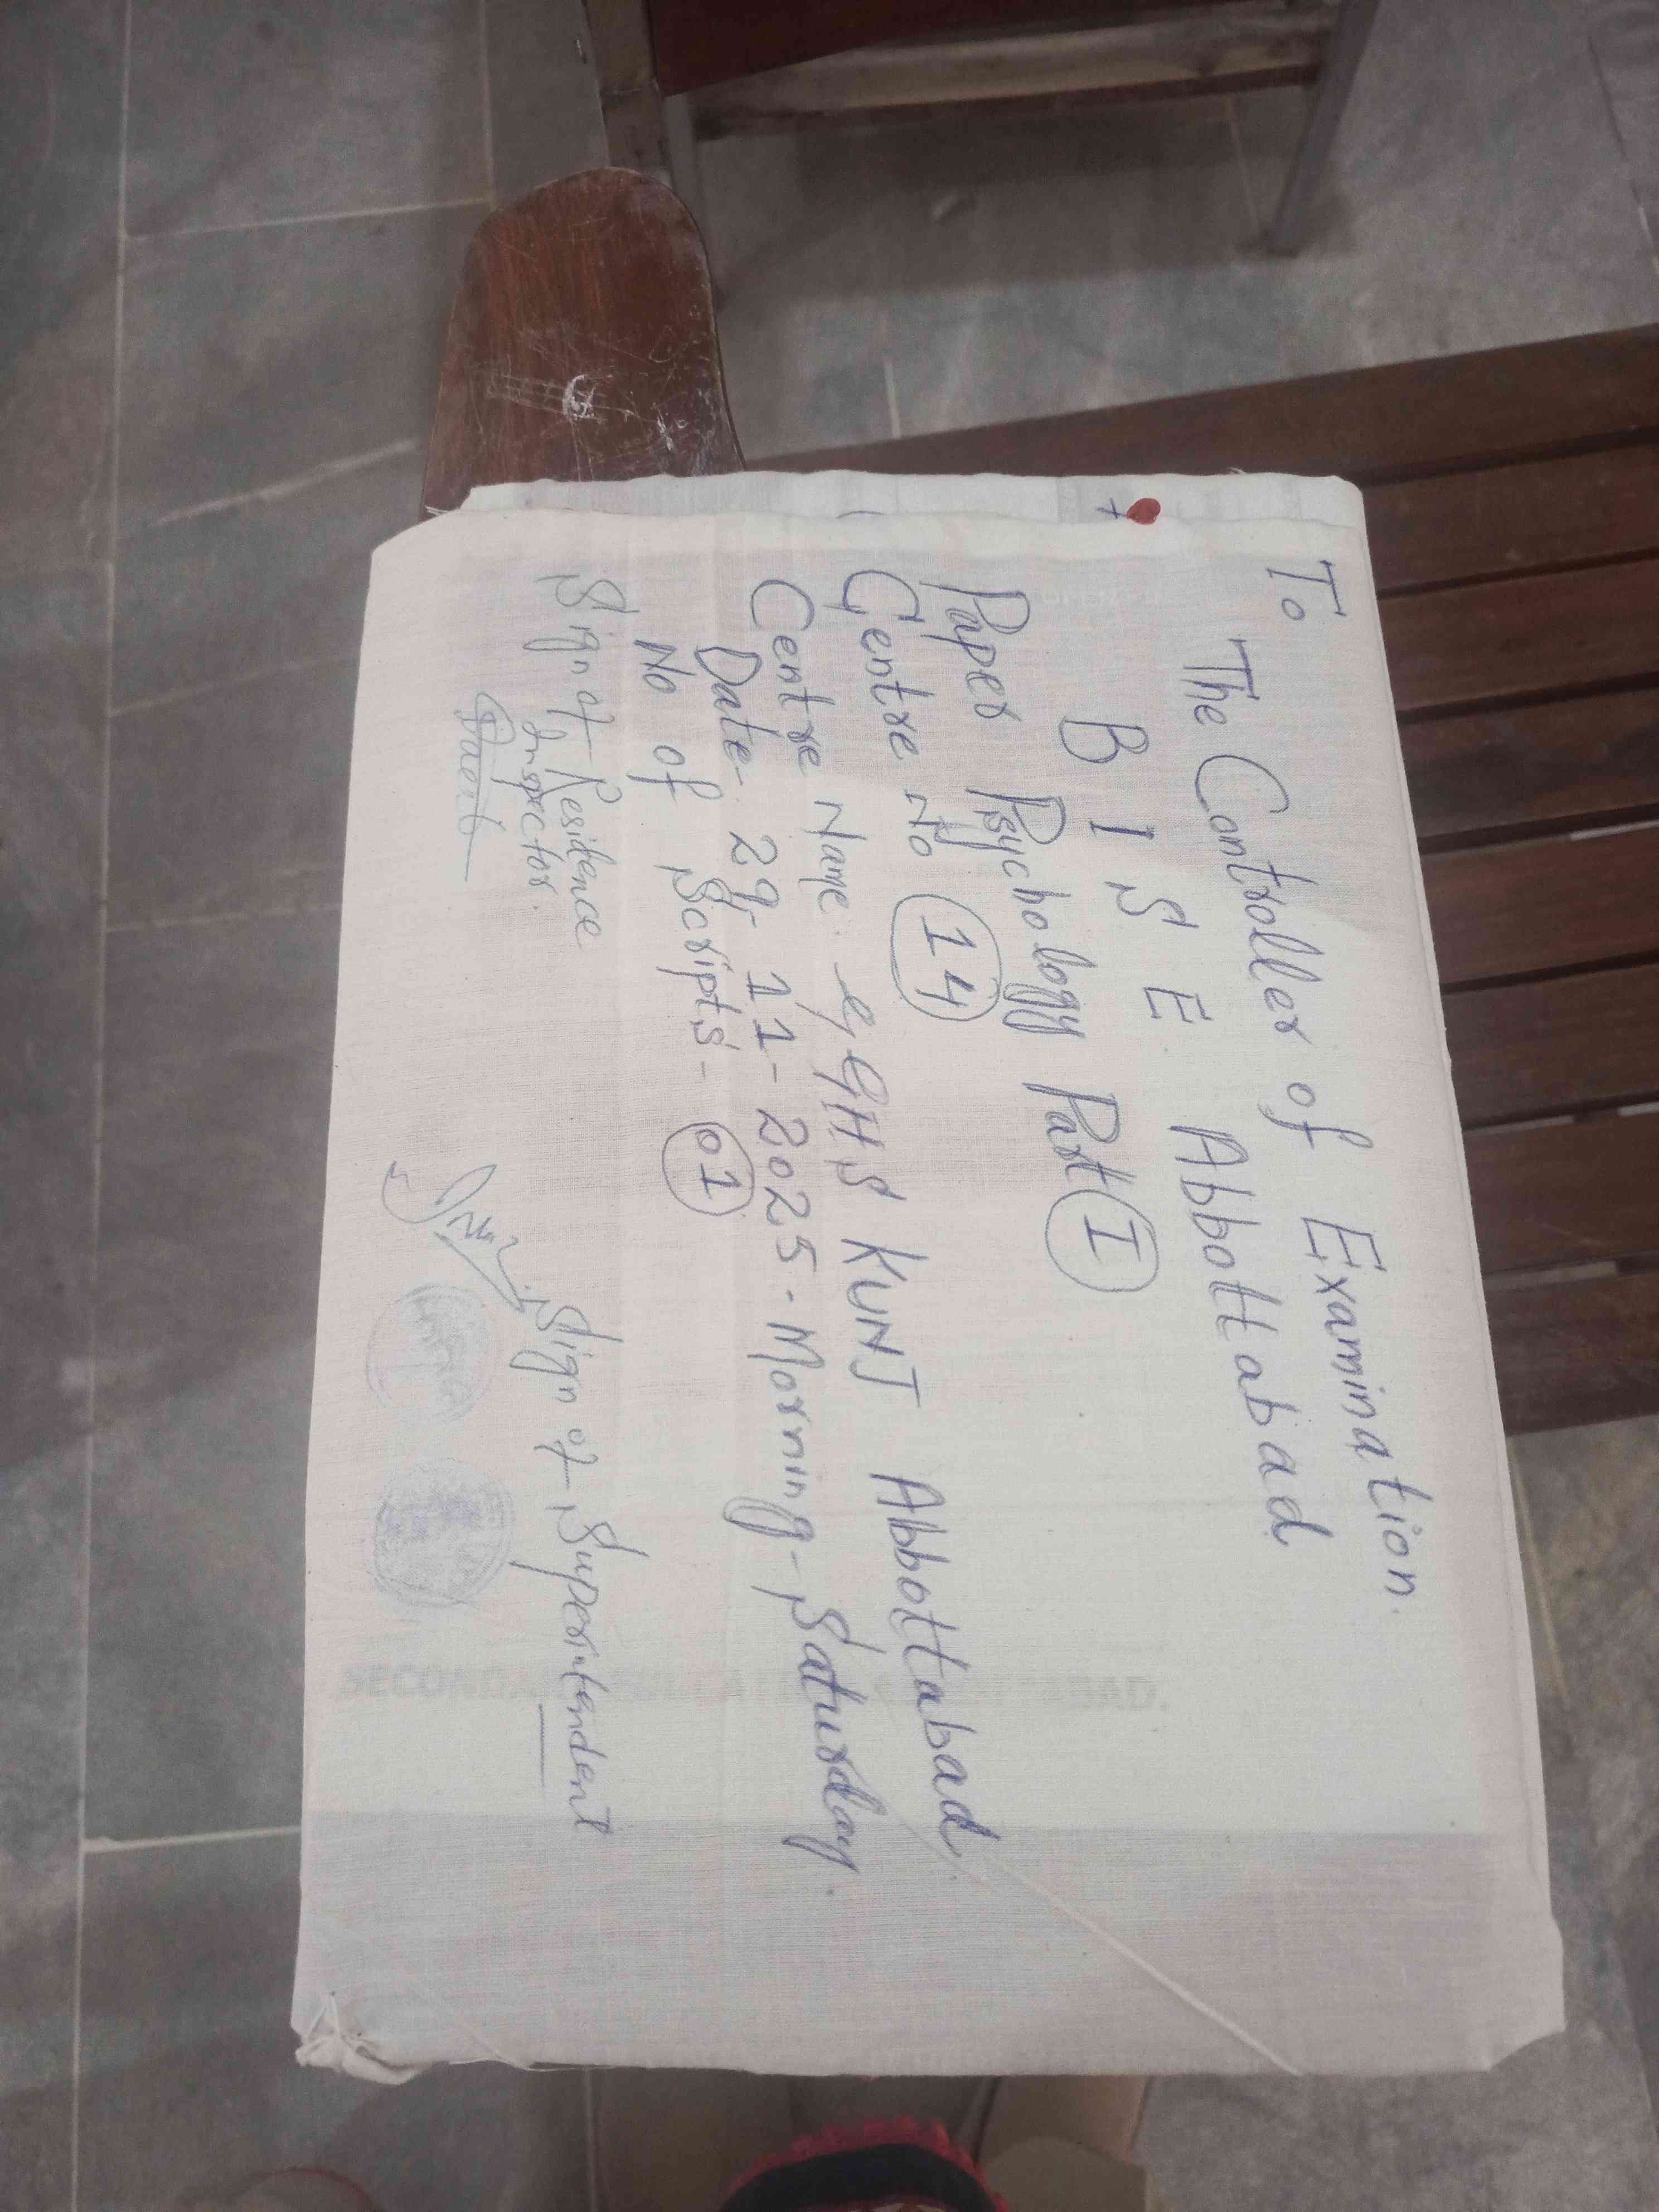 To
The Controller of Examination.
B I S E Abbottabad
Paper Psychology Part I
Centre No 14
Centre Name. GGHS KUNJ Abbottabad.
Date. 29-11-2025-Morning-Saturday.
No of Scripts- 01
Sign of Residence
Inspector.
Sign of Superintendent
SECONDARY EDUCATION ABBOTTABAD.